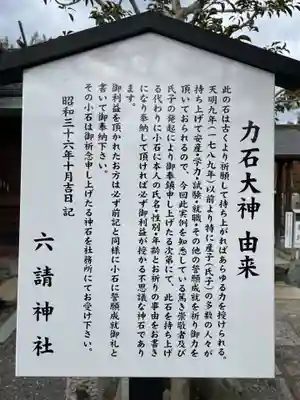 力石大神 由来
此の石は古くより祈願して持ち上がればあらゆる力を授けられる。
天明九年(一七八九年)以前より特に産子(氏子)の多数の人々が
持ち上げて安産・学力・試験・就職・その他の誓願成就を祈り御力を
頂いておられるので、今回此実例を知悉している篤き崇敬者及び
氏子の発起により御奉鎮申し上げたる次第にて、此石を持ち上げ
る代わりに小石に本人の氏名・性別・年令とお祈りの事由をお書き
になり奉納して頂ければ必ず御利益が授かる不思議な神石であり
ます。
御利益を頂かれたお方は必ず前記と同様に小石に誓願成就御礼と
書いて御奉納下さい。
その小石は御祈念申し上げたる神石を社務所にてお受け下さい。
昭和三十六年十月吉日記
六請神社